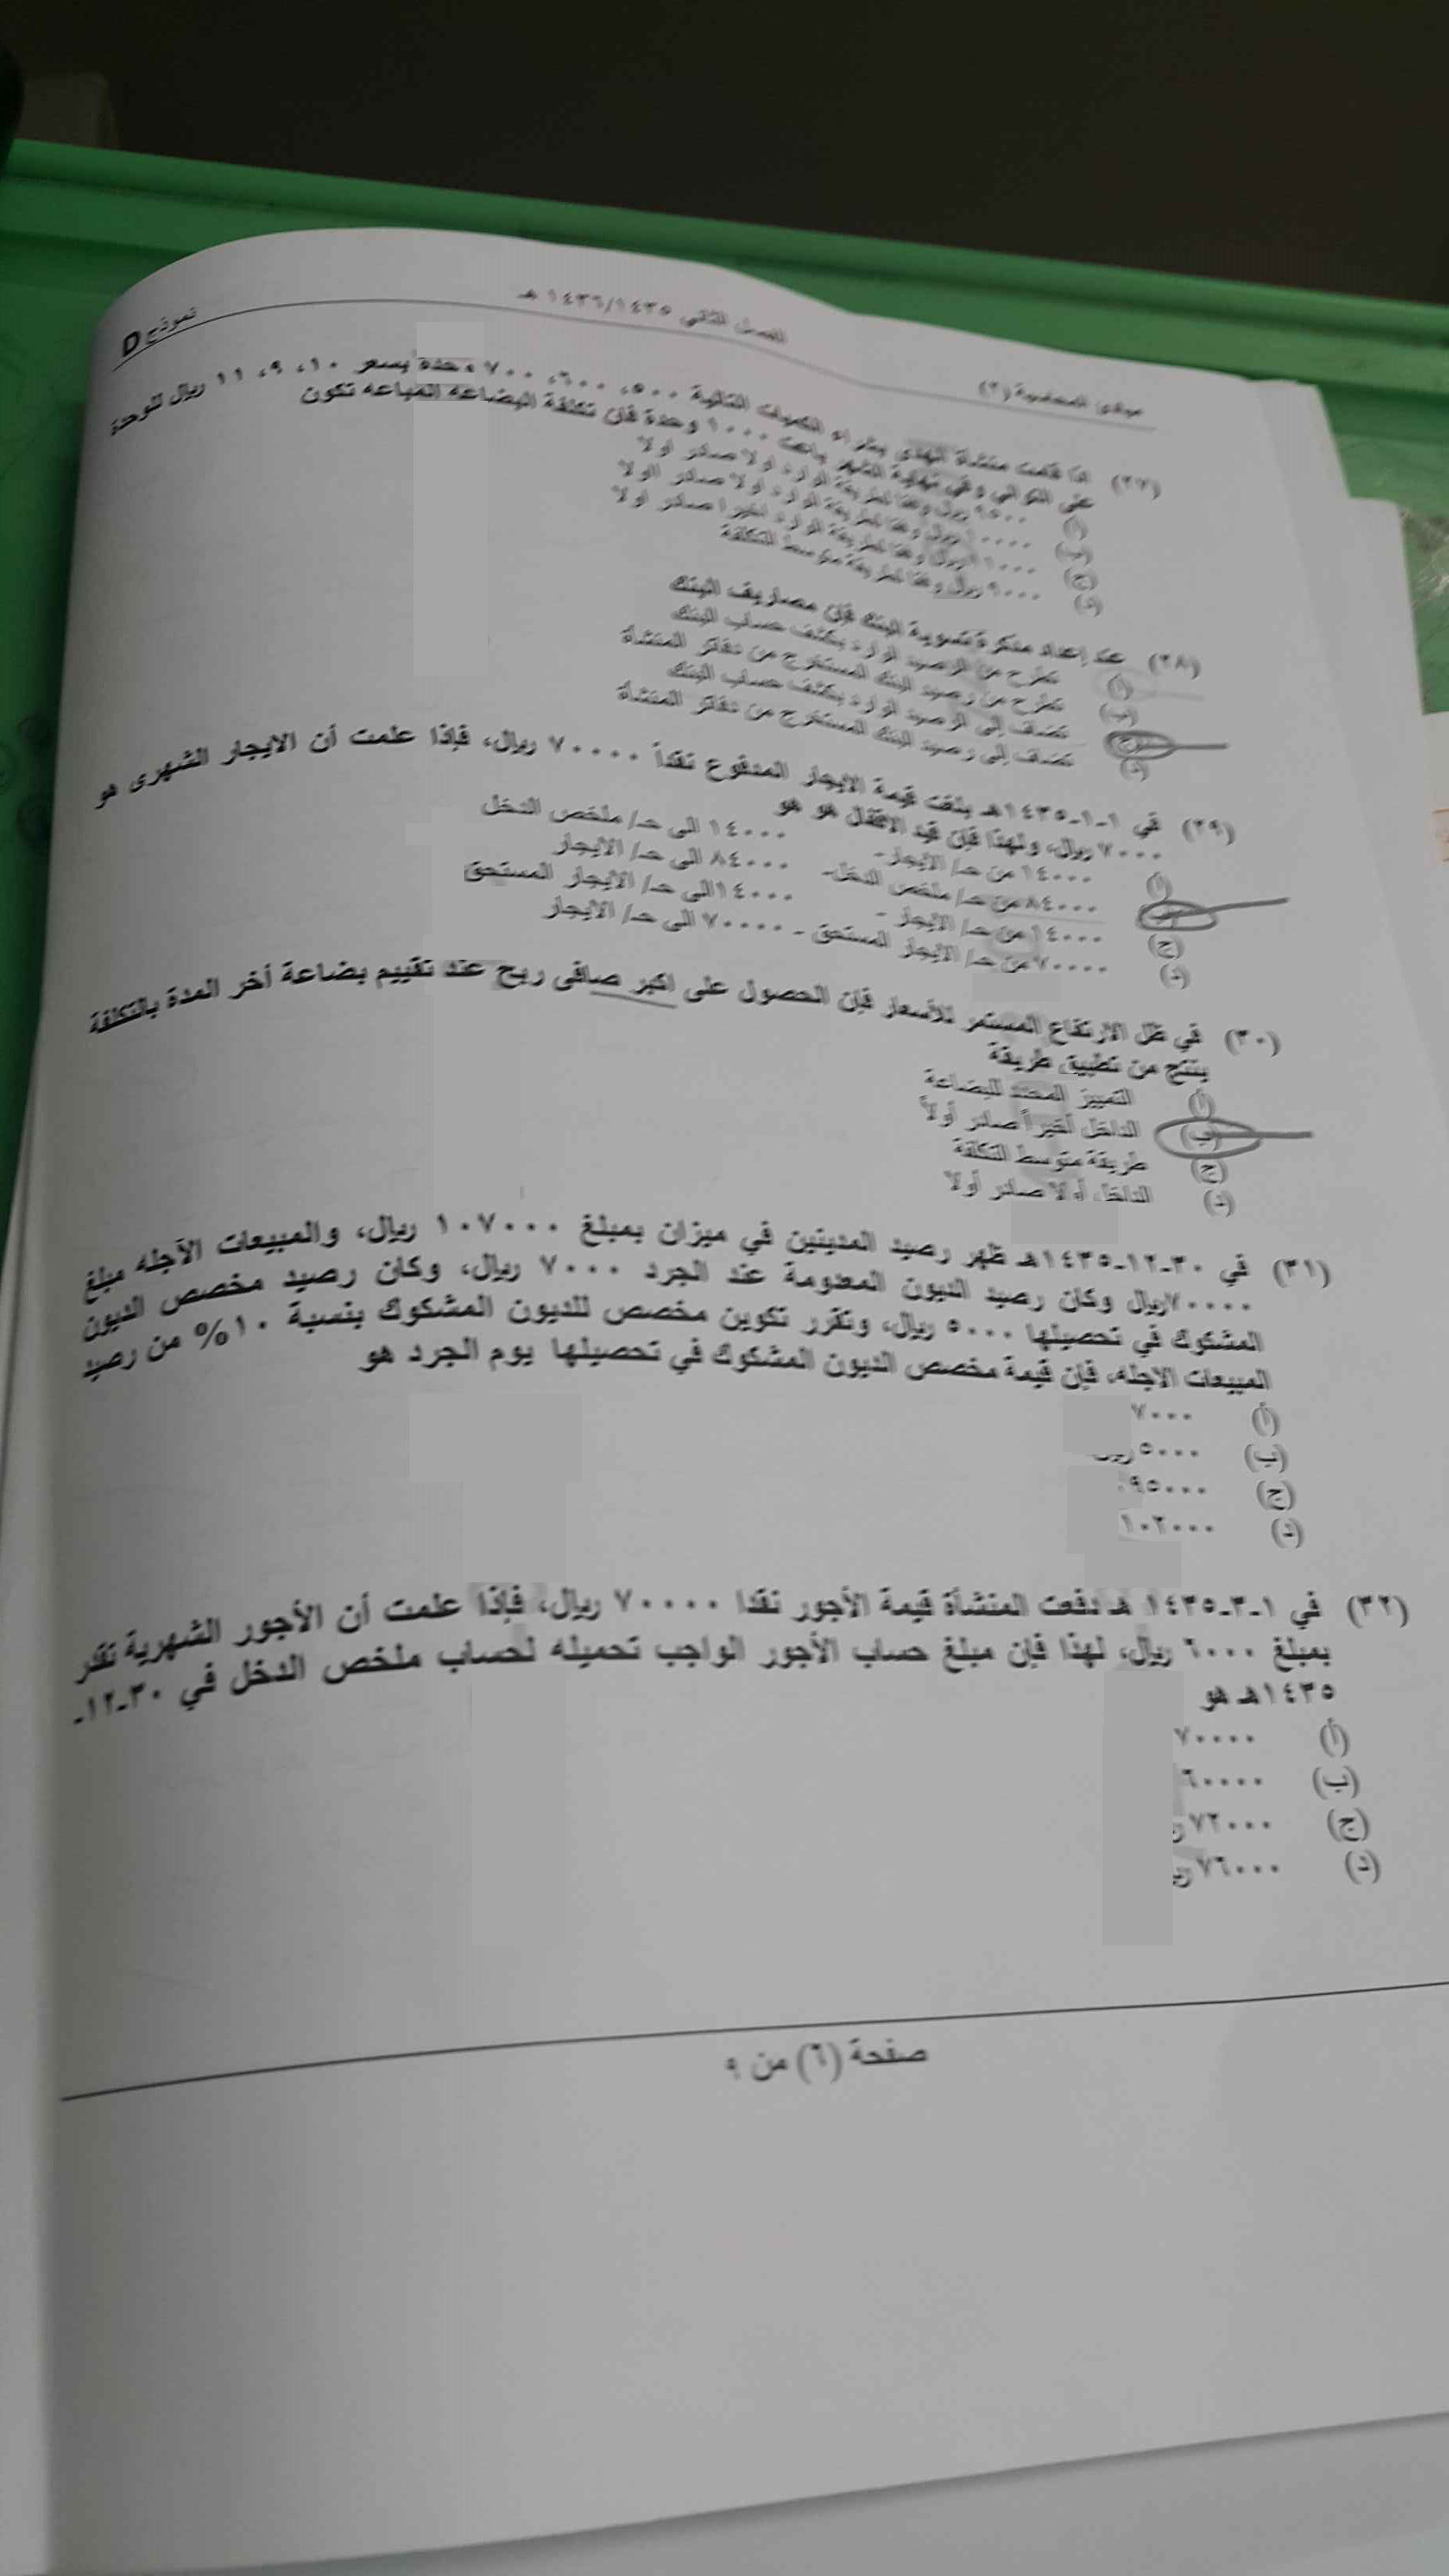 مبادئ المحاسبة (٢)
الفصل الثاني ١٤٣٦/١٤٣٥ هـ
نموذج D
(٢٧) اذا قامت منشأة الهدى بشراء الكميات التالية ٥٠٠، ٦٠٠، ٧٠٠ وحدة بسعر ١٠، ٩، ١١ ريال للوحدة
على التوالي وفي نهاية الشهر باعت ١٠٠٠ وحدة فان تكلفة البضاعه المباعه تكون
(أ) ٩٥٠٠ ريال وفقا لطريقة الوارد اولا صادر اولا
(ب) ١٠٠٠٠ ريال وفقا لطريقة الوارد اولا صادر اولا
(ج) ١١٠٠٠ ريال وفقا لطريقة الوارد اخيرا صادر اولا
(د) ٩٠٠٠ ريال وفقا لطريقة متوسط التكلفة
(٢٨) عند إعداد مذكرة تسوية البنك فإن مصاريف البنك
(أ) تطرح من الرصيد الوارد بكشف حساب البنك
(ب) تطرح من رصيد البنك المستخرج من دفاتر المنشأة
(ج) تضاف إلى الرصيد الوارد بكشف حساب البنك
(د) تضاف إلى رصيد البنك المستخرج من دفاتر المنشأة
(٢٩) في ١-١-١٤٣٥هـ بلغت قيمة الايجار المدفوع نقداً ٧٠٠٠٠ ريال، فإذا علمت أن الايجار الشهرى هو
٧٠٠٠ ريال، ولهذا فإن قيد الاقفال هو هو
(أ) ١٤٠٠٠ من حـ/ الايجار- ١٤٠٠٠ الى حـ/ ملخص الدخل
(ب) ٨٤٠٠٠ من حـ/ ملخص الدخل- ٨٤٠٠٠ الى حـ/ الايجار
(ج) ١٤٠٠٠ من حـ/ الايجار - ١٤٠٠٠الى حـ/ الايجار المستحق
(د) ٧٠٠٠٠ من حـ/ الايجار المستحق - ٧٠٠٠٠ الى حـ/ الايجار
(٣٠) في ظل الارتفاع المستمر للأسعار فإن الحصول على اكبر صافى ربح عند تقييم بضاعة أخر المدة بالتكلفة
ينتج من تطبيق طريقة
(أ) التمييز المحدد للبضاعة
(ب) الداخل أخيراً صادر أولاً
(ج) طريقة متوسط التكلفة
(د) الداخل أولا صادر أولا
(٣١) في ٣٠-١٢-١٤٣٥هـ ظهر رصيد المدينين في ميزان بمبلغ ١٠٧٠٠٠ ريال، والمبيعات الآجله مبلغ
٧٠٠٠٠ريال وكان رصيد الديون المعدومة عند الجرد ٧٠٠٠ ريال، وكان رصيد مخصص الديون
المشكوك في تحصيلها ٥٠٠٠ ريال، وتقرر تكوين مخصص للديون المشكوك بنسبة ١٠% من رصيد
المبيعات الاجله، فإن قيمة مخصص الديون المشكوك في تحصيلها يوم الجرد هو
(أ) ٧٠٠٠
(ب) ٥٠٠٠
(ج) ٩٥٠٠٠
(د) ١٠٢٠٠٠
(٣٢) في ١-٣-١٤٣٥ هـ دفعت المنشأة قيمة الأجور نقدا ٧٠٠٠٠ ريال، فإذا علمت أن الأجور الشهرية تقدر
بمبلغ ٦٠٠٠ ريال، لهذا فإن مبلغ حساب الأجور الواجب تحميله لحساب ملخص الدخل في ٣٠-١٢-
١٤٣٥هـ هو
(أ) ٧٠٠٠٠
(ب) ٦٠٠٠٠
(ج) ٧٢٠٠٠
(د) ٧٦٠٠٠
صفحة (٦) من ٩